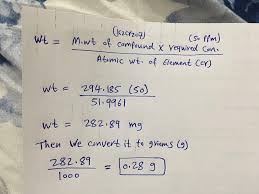 (K2Cr2O7) (50 ppm)
Wt = M.wt of compound x required Con.
Atomic wt. of Element (Cr)
Wt = 294.185 (50)
51.9961
Wt = 282.89 mg
Then We convert it to grams (g)
282.89
1000 = 0.28 g